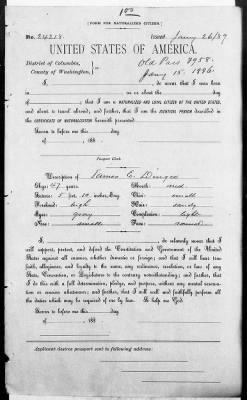 100
[FORM FOR NATURALIZED CITIZEN.]
No. 24218. Issued Jany 26/87
UNITED STATES OF AMERICA.
District of Columbia,
County of Washington,
Old Pass 9958.
Jany 15, 1886.
I, do swear that I was born
in on or about the day
of ; that I am a NATURALIZED AND LOYAL CITIZEN OF THE UNITED STATES,
and about to travel abroad; and further, that I am the IDENTICAL PERSON described in
the CERTIFICATE OF NATURALIZATION herewith presented.
Sworn to before me this day
of , 188
Passport Clerk.
Description of James C.
Age: 47 years. Mouth: med
Stature: 5 feet, 10 inches, Eng. Chin: small
Forehead: high Hair: sandy
Eyes: gray Complexion: light
Nose: small Face: round
I, do solemnly swear that I will
support, protect, and defend the Constitution and Government of the United
States against all enemies, whether domestic or foreign; and that I will bear true
faith, allegiance, and loyalty to the same, any ordinance, resolution, or law of any
State, Convention, or Legislature to the contrary notwithstanding; and further, that
I do this with a full determination, pledge, and purpose, without any mental reservation
or evasion whatsoever; and further, that I will well and faithfully perform all
the duties which may be required of me by law. So help me God.
Sworn to before me this day
of , 188
Applicant desires passport sent to following address: